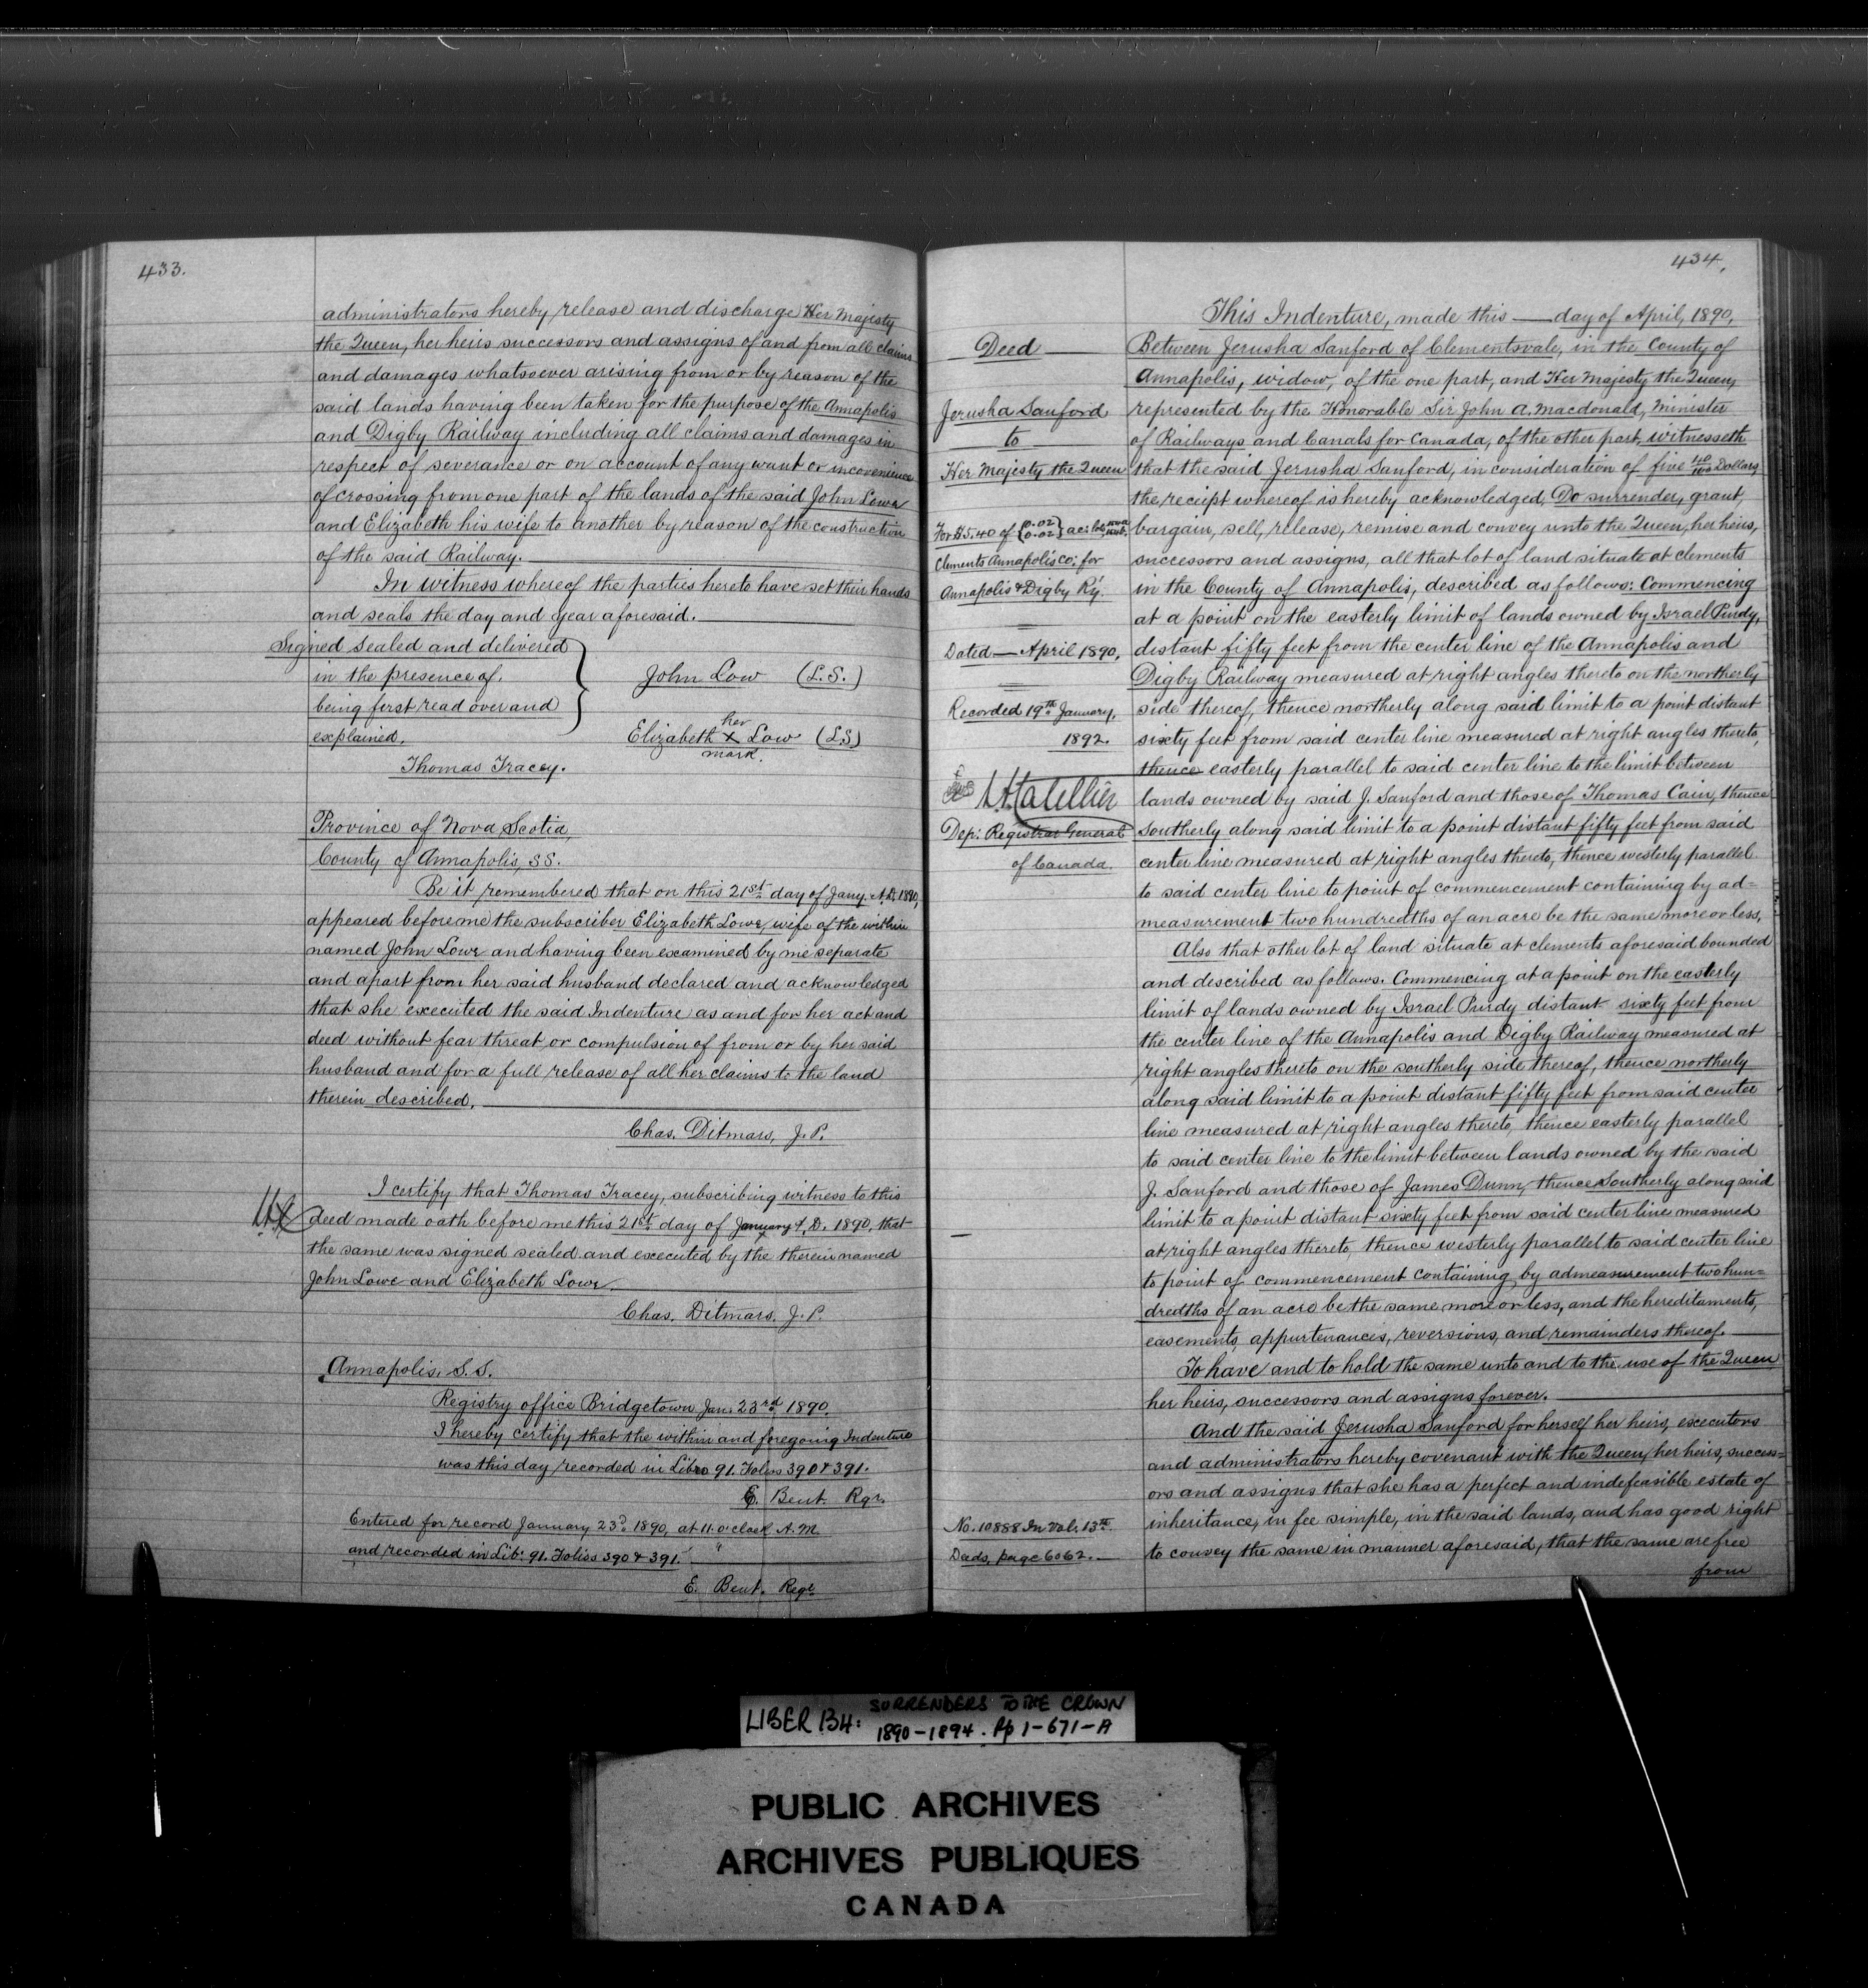 433.
administrators hereby release and discharge Her Majesty
the Queen, her heirs successors and assigns of and from all claims
and damages whatsoever arising from or by reason of the
said lands having been taken for the purpose of the Annapolis
and Digby Railway including all claims and damages in
respect of severance or on account of any want or inconvenience
of crossing from one part of the lands of the said John Lowe
and Elizabeth his wife to another by reason of the construction
of the said Railway.
In witness whereof the parties hereto have set their hands
and seals the day and year aforesaid.
Signed sealed and delivered
in the presence of.
being first read over and
explained.
Thomas Tracey.
John Low (L.S.)
her
Elizabeth X Low (LS)
mark.
Province of Nova Scotia,
County of Annapolis, SS.
Be it remembered that on this 21st day of Jany. A.D. 1890,
appeared before me the subscriber Elizabeth Lowe, wife of the within
named John Lowe and having been examined by me separate
and apart from her said husband declared and acknowledged
that she executed the said Indenture as and for her act and
deed without fear threat or compulsion of from or by her said
husband and for a full release of all her claims to the land
therein described.
Chas. Ditmars, J.P.
I certify that Thomas Tracey, subscribing witness to this
deed made oath before me this 21st day of January A.D. 1890, that
the same was signed sealed and executed by the therein named
John Lowe and Elizabeth Lowe.
Chas. Ditmars. J.P.
Annapolis. S.S.
Registry office Bridgetown Jan. 23rd 1890.
I hereby certify that the within and foregoing Indenture
was this day recorded in Libro 91. Folios 390 & 391.
E. Bent. Rgr.
Entered for record January 23d 1890, at 11 o'clock A.M.
and recorded in Lib. 91. Folios 390 & 391.
E. Bent. Regr
434.
Deed
Jerusha Sanford
to
Her Majesty the Queen
For $5.40 of {0.02 0.02} ac:
Clements Annapolis Co: for
Annapolis & Digby Ry.
Dated — April 1890,
Recorded 19th January,
1892.
Dep: Registrar General
of Canada.
No. 10888 In Vol. 13th
Deeds, page 6062.
This Indenture, made this — day of April, 1890,
Between Jerusha Sanford of Clementsvale, in the County of
Annapolis, widow, of the one part, and Her Majesty the Queen,
represented by the Honorable Sir John A. Macdonald, Minister
of Railways and Canals for Canada, of the other part, witnesseth
that the said Jerusha Sanford, in consideration of five 40/100 Dollars,
the receipt whereof is hereby acknowledged, Do surrender, grant,
bargain, sell, release, remise and convey unto the Queen, her heirs,
successors and assigns, all that lot of land situate at clements
in the County of Annapolis, described as follows: Commencing
at a point on the easterly limit of lands owned by Israel Purdy,
distant fifty feet from the center line of the Annapolis and
Digby Railway measured at right angles thereto on the northerly
side thereof, thence northerly along said limit to a point distant
sixty feet from said center line measured at right angles thereto,
thence easterly parallel to said center line to the limit between
lands owned by said J. Sanford and those of Thomas Cain, thence
Southerly along said limit to a point distant fifty feet from said
center line measured at right angles thereto, thence westerly parallel
to said center line to point of commencement containing by ad=
measurement two hundredths of an acre be the same more or less,
Also that other lot of land situate at clements aforesaid bounded
and described as follows. Commencing at a point on the easterly
limit of lands owned by Israel Purdy distant sixty feet from
the center line of the Annapolis and Digby Railway measured at
right angles thereto on the southerly side thereof, thence northerly
along said limit to a point distant fifty feet from said center
line measured at right angles thereto, thence easterly parallel
to said center line to the limit between lands owned by the said
J. Sanford and those of James Dunn, thence Southerly along said
limit to a point distant sixty feet from said center line measured
at right angles thereto, thence westerly parallel to said center line
to point of commencement containing by admeasurement two hun=
dredths of an acre be the same more or less, and the hereditaments,
easements, appurtenances, reversions, and remainders thereof.
To have and to hold the same unto and to the use of the Queen
her heirs, successors and assigns forever.
And the said Jerusha Sanford for herself her heirs, executors
and administrators hereby covenant with the Queen, her heirs, success=
ors and assigns that she has a perfect and indefeasible estate of
inheritance, in fee simple, in the said lands, and has good right
to convey the same in manner aforesaid, that the same are free
from
LIBER 134: SURRENDERS TO THE CROWN
1890-1894. Pp 1-671-A
PUBLIC ARCHIVES
ARCHIVES PUBLIQUES
CANADA